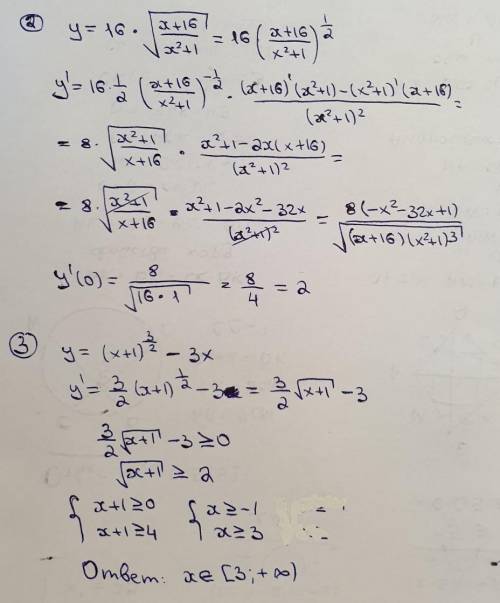 ② y = 16 · √((x+16)/(x²+1)) = 16 ((x+16)/(x²+1))^(1/2)
y' = 16 · 1/2 ((x+16)/(x²+1))^(-1/2) · ((x+16)'(x²+1) - (x²+1)'(x+16))/(x²+1)² =
= 8 · √((x²+1)/(x+16)) · (x²+1-2x(x+16))/(x²+1)² =
= 8 · √((x²+1)/(x+16)) · (x²+1-2x²-32x)/(x²+1)² = 8(-x²-32x+1)/√((x+16)(x²+1)³)
y'(0) = 8/√(16·1) = 8/4 = 2
③ y = (x+1)^(3/2) - 3x
y' = 3/2 (x+1)^(1/2) - 3 = 3/2 √(x+1) - 3
3/2 √(x+1) - 3 ≥ 0
√(x+1) ≥ 2
{ x+1 ≥ 0 { x ≥ -1
x+1 ≥ 4 x ≥ 3
Ответ: x ∈ [3; +∞)